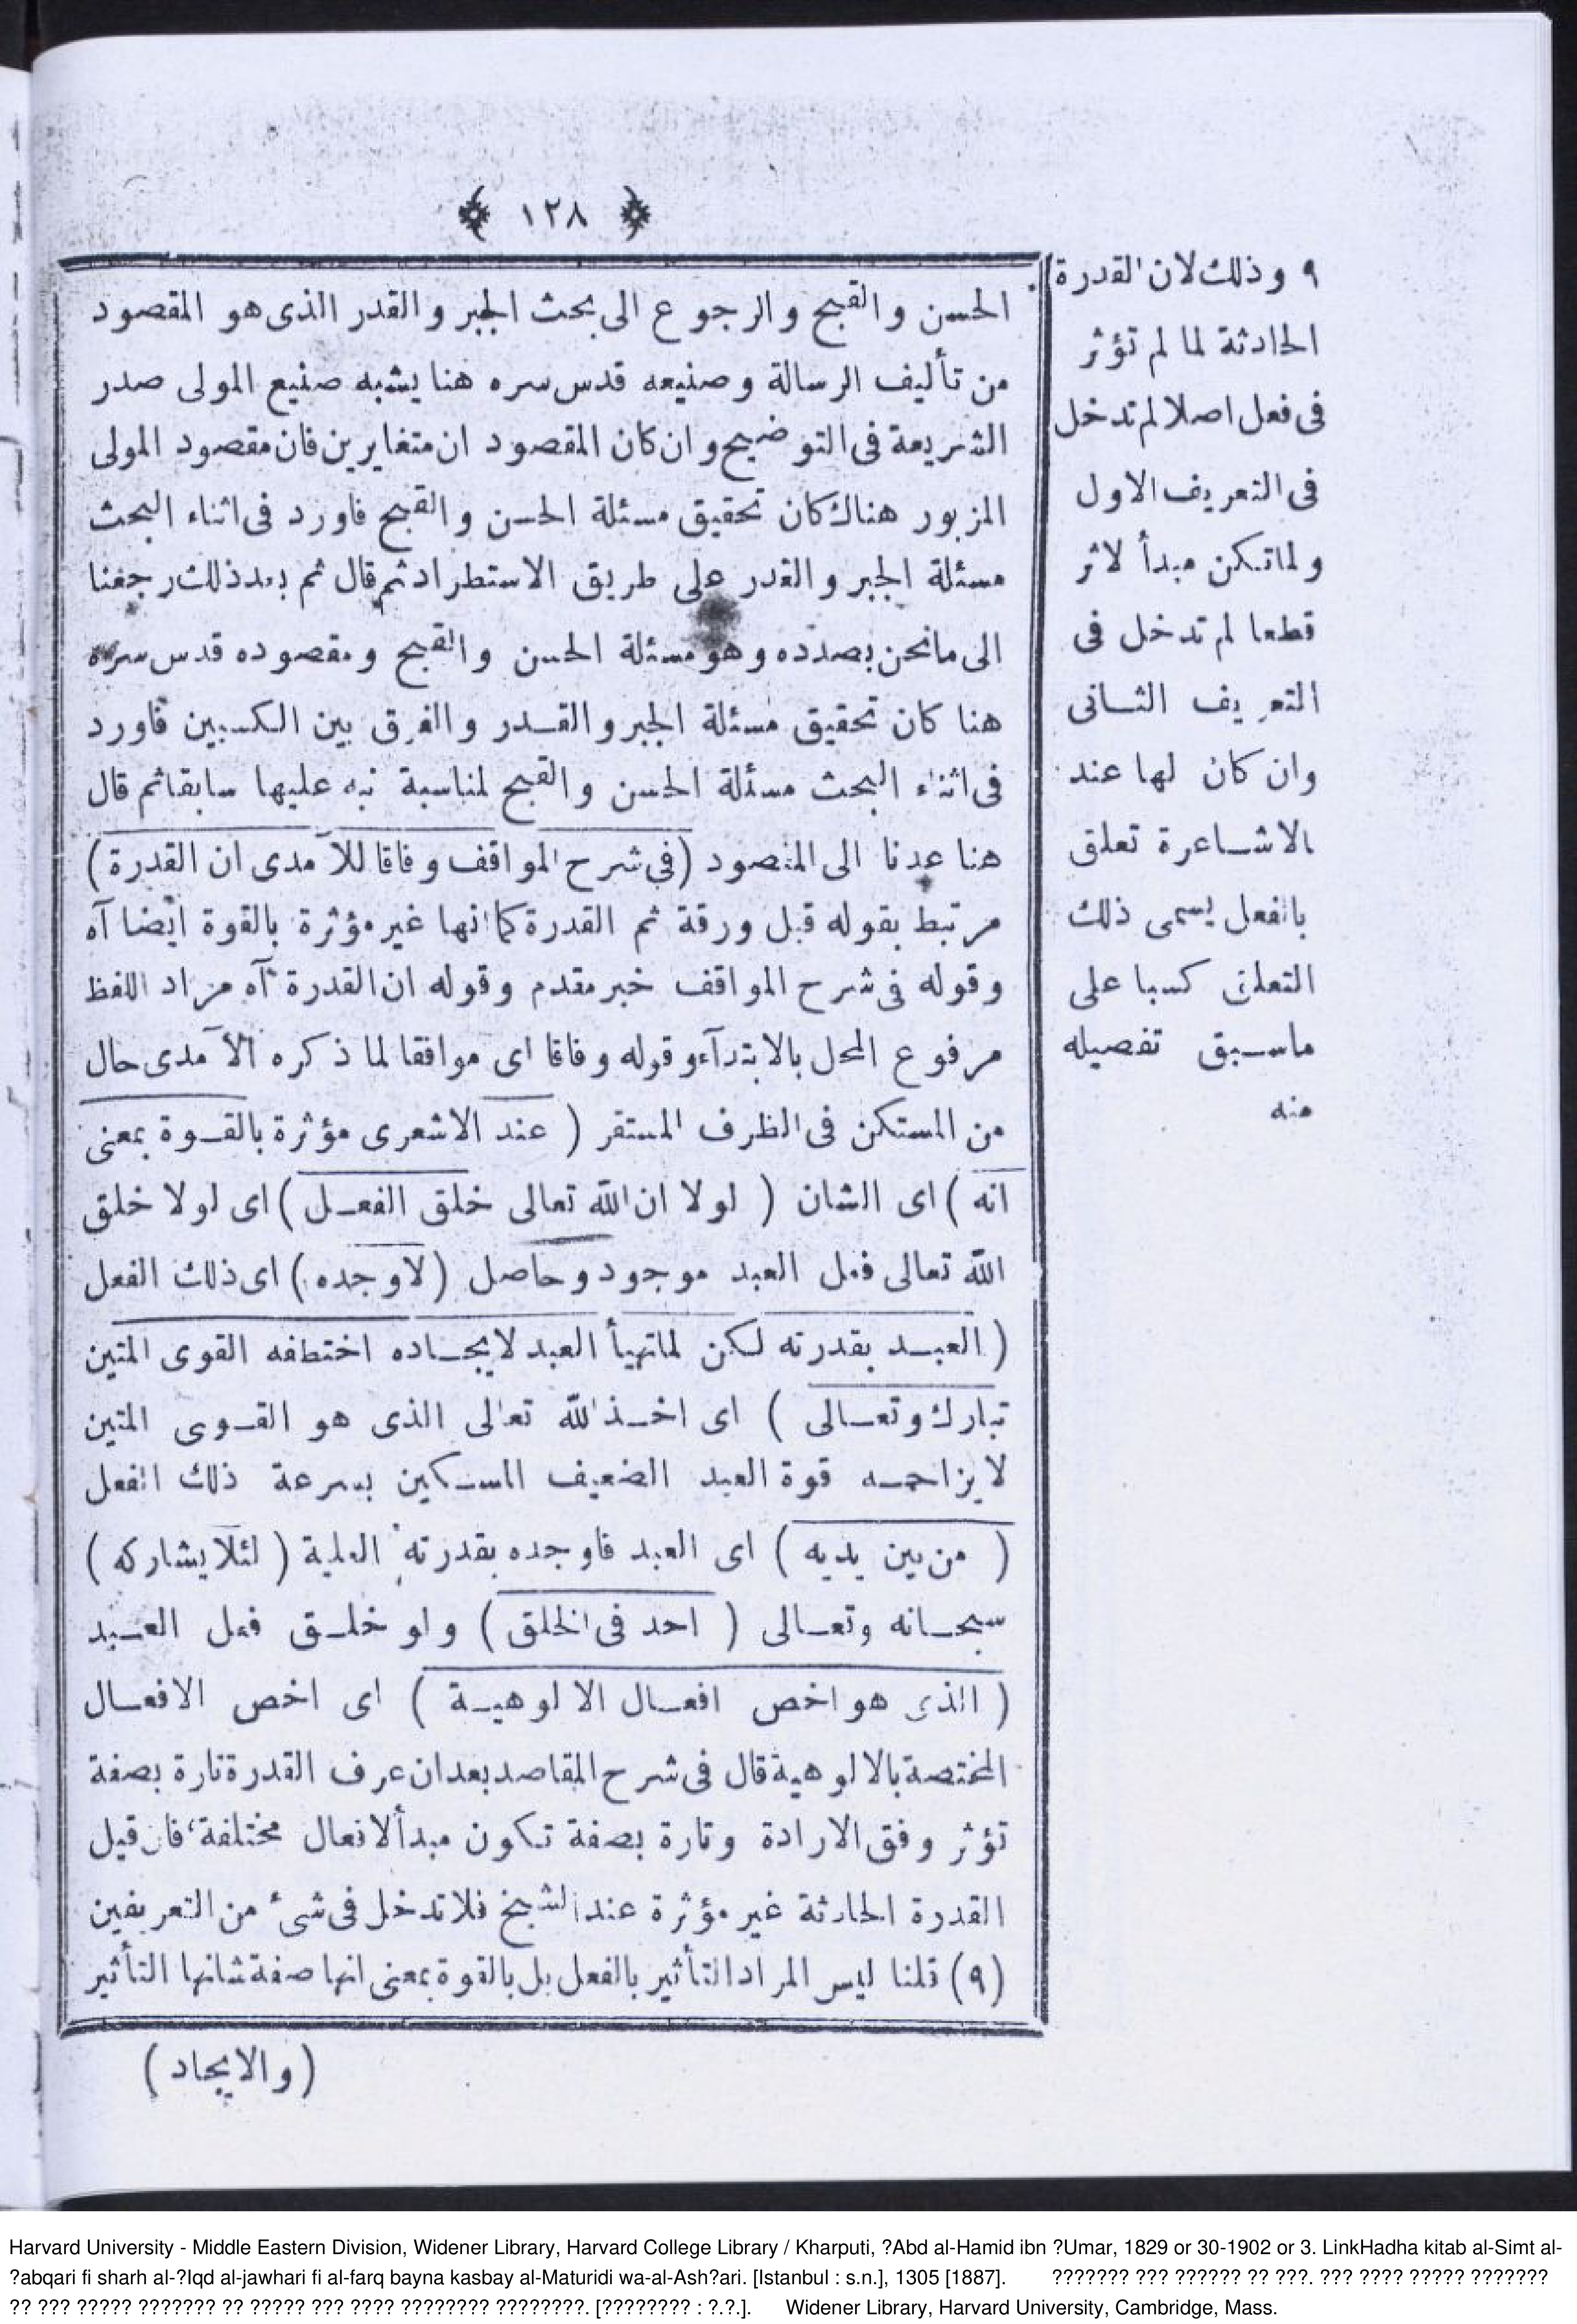 ١٢٨
الحسن والقبح والرجوع الى بحث الجبر والقدر الذى هو المقصود
من تأليف الرسالة وصنيعه قدس سره هنا يشبه صنيع المولى صدر
الشريعة فى التوضيح وان كان المقصود ان متغايرين فان مقصود المولى
المزبور هناك كان تحقيق مسئلة الحسن والقبح فاورد فى اثناء البحث
مسئلة الجبر والقدر على طريق الاستطراد ثم قال ثم بعد ذلك رجعنا
الى مانحن بصدده وهو مسئلة الحسن والقبح ومقصوده قدس سره
هنا كان تحقيق مسئلة الجبر والقدر والفرق بين الكسبين فاورد
فى اثناء البحث مسئلة الحسن والقبح لمناسبة نبه عليها سابقا ثم قال
هنا عدنا الى المقصود (فى شرح المواقف وفاقا للآمدى ان القدرة)
مرتبط بقوله قبل ورقة ثم القدرة كما انها غير مؤثرة بالقوة ايضا آه
وقوله فى شرح المواقف خبر مقدم وقوله ان القدرة آه مراد اللفظ
مرفوع المحل بالابتدآء وقوله وفاقا اى موافقا لما ذكره الآمدى حال
من المستكن فى الظرف المستقر (عند الاشعرى مؤثرة بالقوة بمعنى
انه) اى الشان (لولا ان الله تعالى خلق الفعل) اى لولا خلق
الله تعالى فعل العبد موجود وحاصل (لاوجده) اى ذلك الفعل
(العبد بقدرته لكن لماتهيأ العبد لايجاده اختطفه القوى المتين
تبارك وتعالى) اى اخذ الله تعالى الذى هو القوى المتين
لايزاحمه قوة العبد الضعيف المسكين بسرعة ذلك الفعل
(من بين يديه) اى العبد فاوجده بقدرته العلية (لئلا يشاركه)
سبحانه وتعالى (احد فى الخلق) ولو خلق فعل العبد
(الذى هو اخص افعال الالوهية) اى اخص الافعال
المختصة بالالوهية قال فى شرح المقاصد بعد ان عرف القدرة تارة بصفة
تؤثر وفق الارادة وتارة بصفة تكون مبدأ لافعال مختلفة، فان قيل
القدرة الحادثة غير مؤثرة عند الشيخ فلا تدخل فى شئ من التعريفين
(٩) قلنا ليس المراد التأثير بالفعل بل بالقوة بمعنى انها صفة شانها التأثير
(والايجاد)
٩ وذلك لان القدرة
الحادثة لما لم تؤثر
فى فعل اصلا لم تدخل
فى التعريف الاول
ولماتكن مبدأ لاثر
قطعا لم تدخل فى
التعريف الثانى
وان كان لها عند
الاشاعرة تعلق
بالفعل يسمى ذلك
التعلق كسبا على
ماسبق تفصيله
منه
Harvard University - Middle Eastern Division, Widener Library, Harvard College Library / Kharputi, ?Abd al-Hamid ibn ?Umar, 1829 or 30-1902 or 3. LinkHadha kitab al-Simt al-
?abqari fi sharh al-?Iqd al-jawhari fi al-farq bayna kasbay al-Maturidi wa-al-Ash?ari. [Istanbul : s.n.], 1305 [1887]. ??????? ??? ?????? ?? ???. ??? ???? ????? ???????
?? ??? ????? ??????? ?? ????? ??? ???? ???????? ????????. [???????? : ?.?.]. Widener Library, Harvard University, Cambridge, Mass.